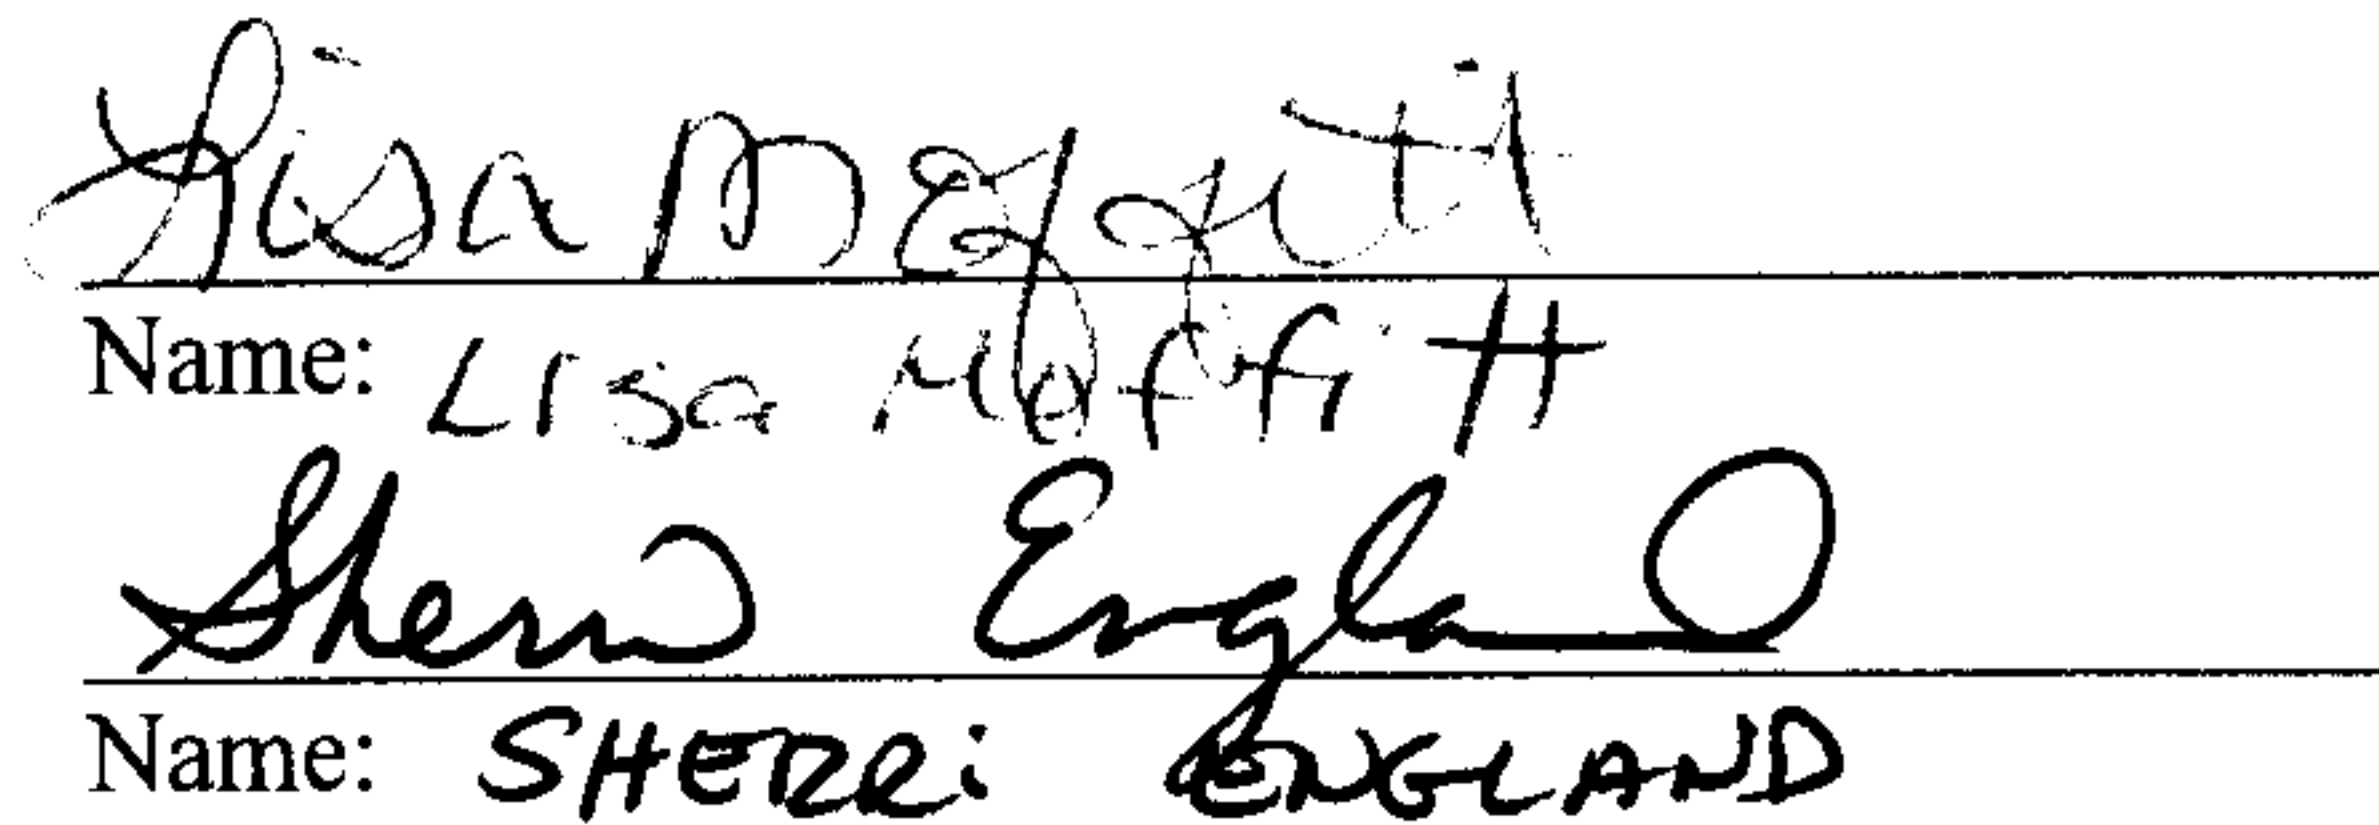 Lisa Moffitt
Name: Lisa Moffitt
Sherri England
Name: SHERRi ENGLAND